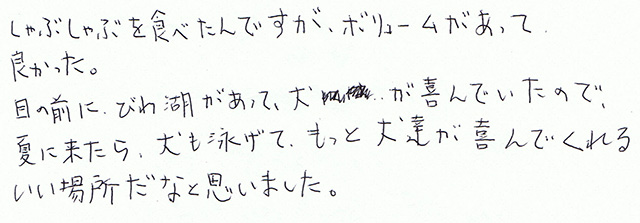 しゃぶしゃぶを食べたんですが、ボリュームがあって
良かった。
目の前に、びわ湖があって、犬 が喜んでいたので、
夏に来たら、犬も泳げて、もっと犬達が喜んでくれる
いい場所だなと思いました。